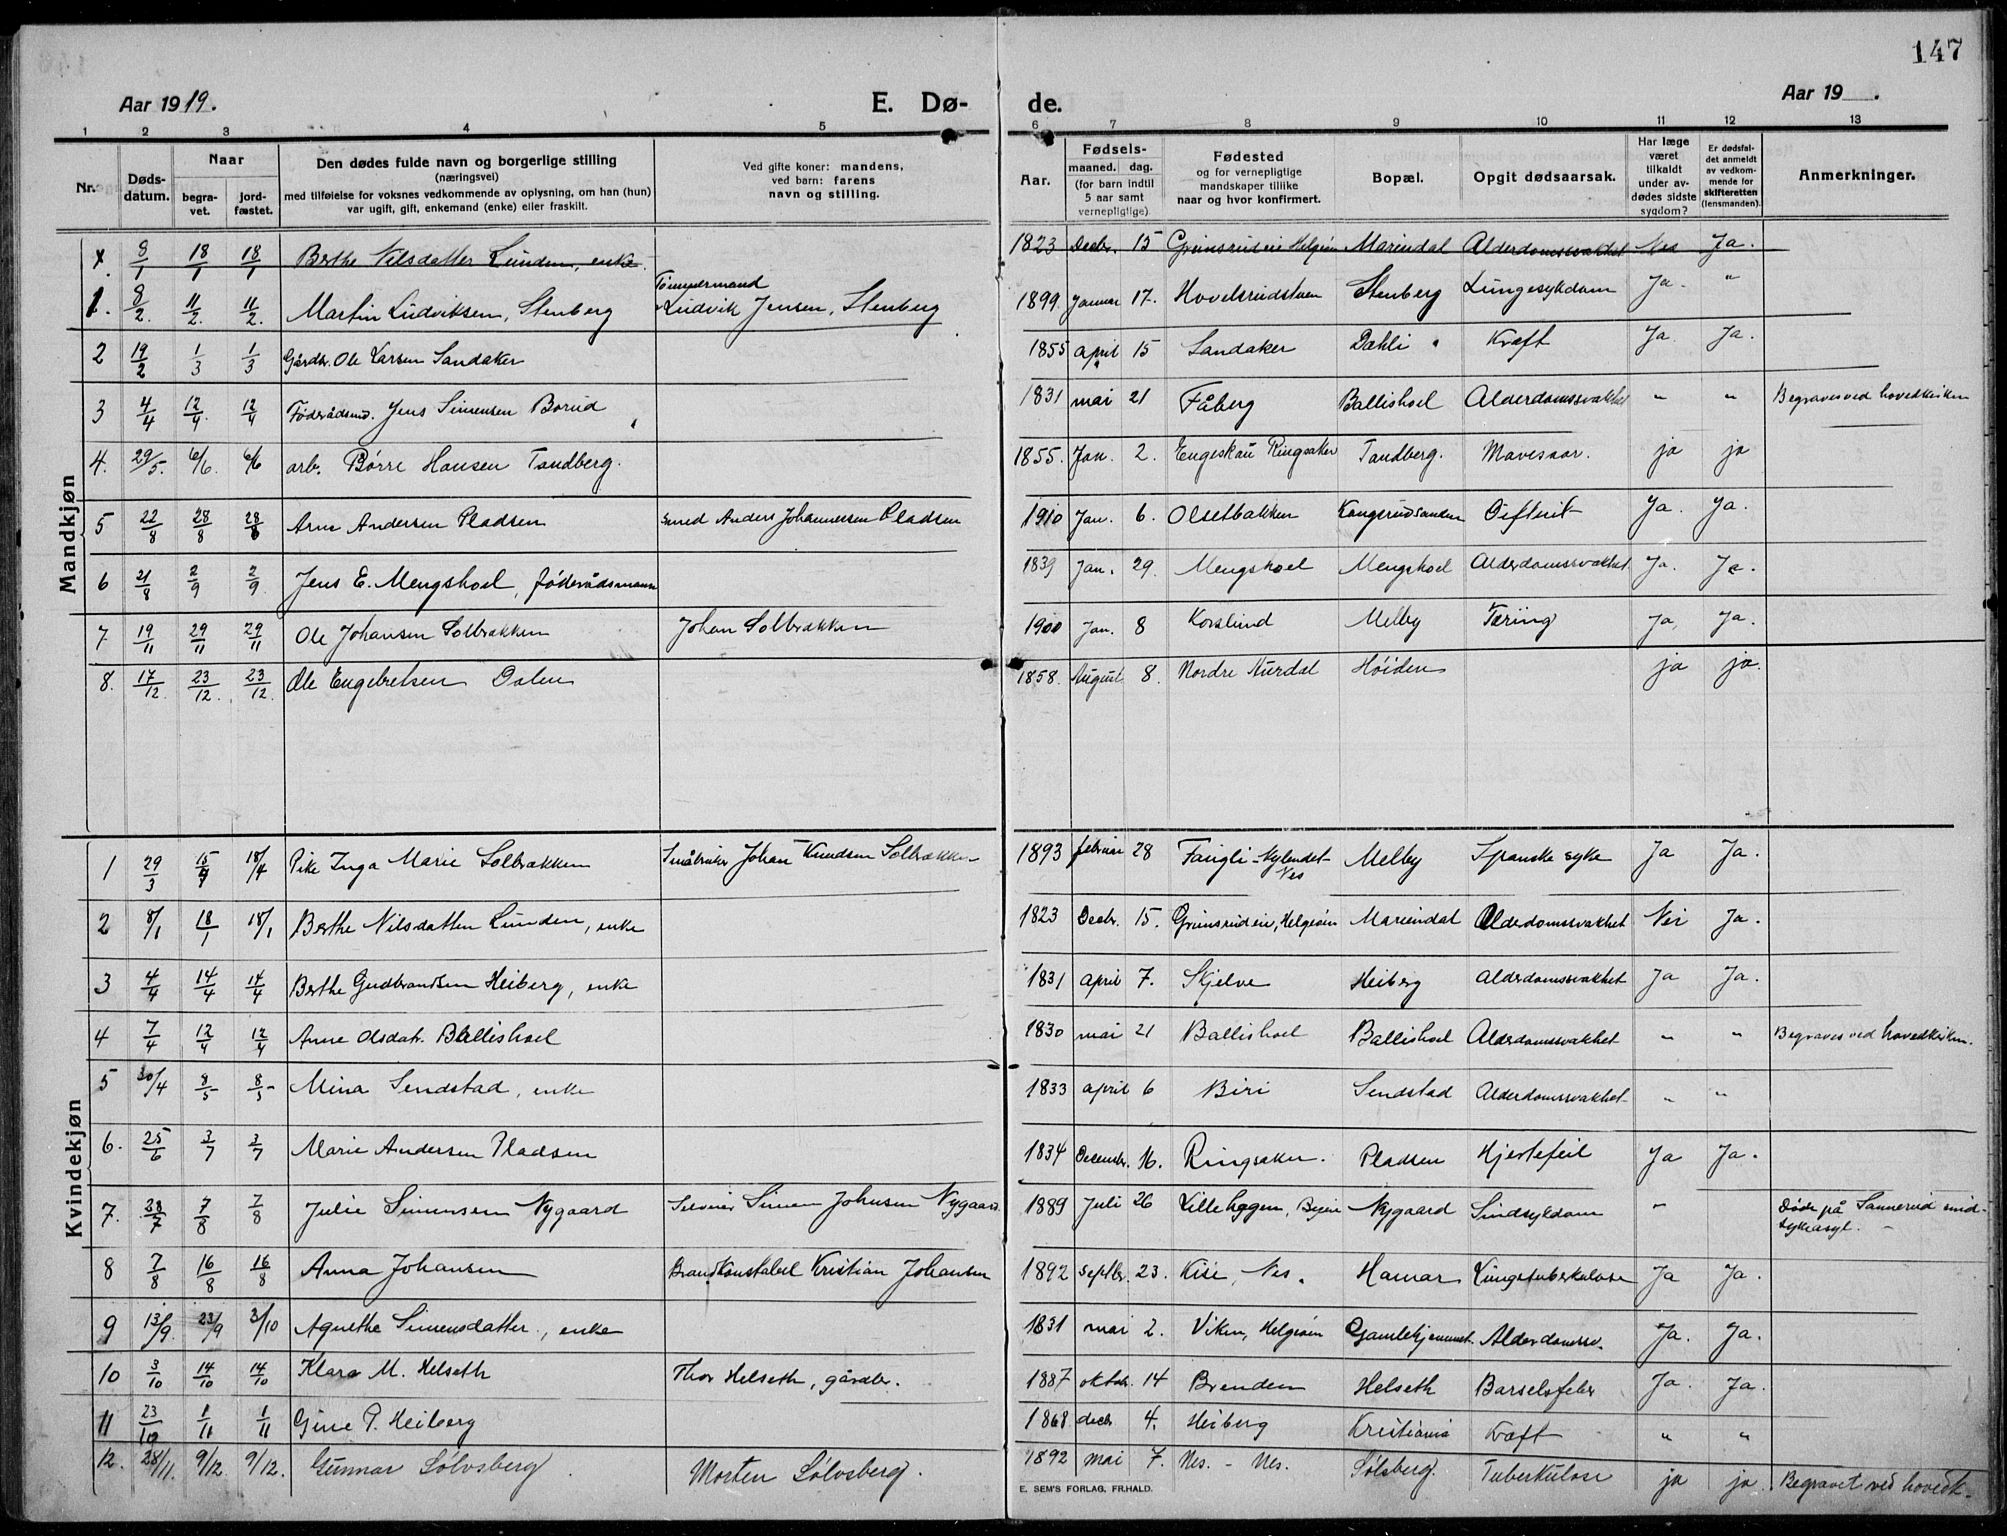 147
Aar 1919.
E. Dø-
de.
Aar 19 .
1 2 3 4 5 6 7 8 9 10 11 12 13
Nr.
Døds-
datum.
Naar
begra-
vet.
jord-
fæstet.
Den dødes fulde navn og borgerlige stilling
(næringsvei)
med tilføielse for voksnes vedkommende av oplysning, om han (hun)
var ugift, gift, enkemand (enke) eller fraskilt.
Ved gifte koner: mandens,
ved barn: farens
navn og stilling.
Aar.
Fødsels-
maaned. dag.
(for barn indtil
5 aar samt
vernepligtige)
Fødested
og for vernepligtige
mandskaper tillike
naar og hvor konfirmert.
Bopæl.
Opgit dødsaarsak.
Har læge
været
tilkaldt
under av-
dødes sidste
sygdom?
Er dødsfal-
det anmeldt
av vedkom-
mende for
skifteretten
(lensmanden).
Anmerkninger.
Mandkjøn
8/1 18/1 18/1 Berthe Nilsdatter Lunden, enke. 1823 Decbr. 15 Grimsrudeie Helgøen Mariendal Alderdomssvakhet Nei Ja.
1. 8/2. 11/2. 11/2. Martin Ludviksen, Stenberg Tømmermand Ludvik Jensen, Stenberg 1899 Januar 17. Hovelsrudstuen Stenberg Lungesykdom Ja. "
2 19/2 1/3 1/3 Gårdbr. Ole Larsen Sandaker 1855 April 15 Sandaker Dæhli Kræft Ja. Ja.
3 4/4 12/4. 12/4 Føderådsmd. Jens Simensen Borud 1831 mai 21 Fåberg Ballishoel Alderdomssvakhet " " Begraves ved hovedkirken
4. 29/5. 6/6. 6/6 arb. Børre Hansen Tandberg. 1855. Jan. 2. Engeskau Ringsaker Tandberg. Mavesaar. ja ja
5 22/8 28/8 28/8 Arne Andersen Pladsen Smed Anders Johannessen Pladsen 1910 Jan. 6. Olsetbakken Difterit Ja. Ja.
6 21/8 2/9 2/9. Jens E. Mengshoel, føderådsmann 1839 Jan. 29. Mengshoel Mengshoel Alderdomssvakhet. Ja. Ja.
7 19/11 29/11 29/11 Ole Johansen Solbrækken Johan Solbrækken 1900 Jan. 8 Korslund Melby Tæring Ja, Ja.
8. 17/12. 23/12. 23/12. Ole Engebretsen Dalen 1858. August 8. Nordre Aurdal Høiden ja ja.
Kvindekjøn
1 29/3 15/4 18/4 Pike Inga Marie Solbrækken Småbruker Johan Knudsen Solbrækken 1893 februar 28 Faugli-Nylendet Nes Melby Spanske syke Ja Ja.
2 8/1 18/1 18/1 Berthe Nilsdatter Lunden, enke 1823 Decbr. 15. Grimsrudeie, Helgøen Mariendal Alderdomssvakhet Nei Ja.
3 4/4 14/4 14/4 Berthe Gudbrandsen Heiberg, enke 1831 April 7. Skjelve Heiberg Alderdomssvakhet Ja Ja.
4 7/4 12/4 12/4 Anne Olsdatr. Ballishoel 1830 mai 21 Ballishoel Ballishoel Alderdomssvakhet " " Begraves ved hovedkirken.
5 30/4 8/5 8/5 Mina Sendstad, enke 1833 april 6 Biri Sendstad Alderdomssvakhet " "
6. 25/6 3/7 3/7 Marie Andersen Pladsen 1834 Decembr. 16. Ringsaker. Pladsen Hjertefeil Ja Ja.
7. 28/7 7/8 7/8 Julie Simensen Nygaard Selveier Simen Johnsen Nygaard. 1889 Juli 26 Nygaard Sindsykdom " Døde på Sannerud sind-
sykeasyl.
8 7/8 16/8 16/8 Anna Johansen Brandkonstabel Kristian Johansen 1892 Septbr. 23. Kise, Nes. Hamar Lungetuberkulose Ja Ja.
9 13/9. 23/9 3/10 Agnethe Simensdatter, enke 1831 mai 2. Viken, Helgøen Gamlehjemmet Alderdomssv. Ja. Ja.
10 3/10 14/10 14/10 Klara M. Helseth Thor Helseth, gårdbr. 1887 oktbr. 14 Brenden Helseth Barselsfeber Ja. Ja.
11 23/10 1/11 1/11 Gine P. Heiberg 1868 decbr 4. Heiberg Kristiania Kræft " "
12. 28/11. 9/12. 9/12. Gunnar Sølvsberg. Morten Sølvsberg. 1892 mai 7. Nes. - Nes. Sølsberg. Tuberkulose ja ja. Begravet ved hovedk.
E. SEM'S FORLAG, FR.HALD.